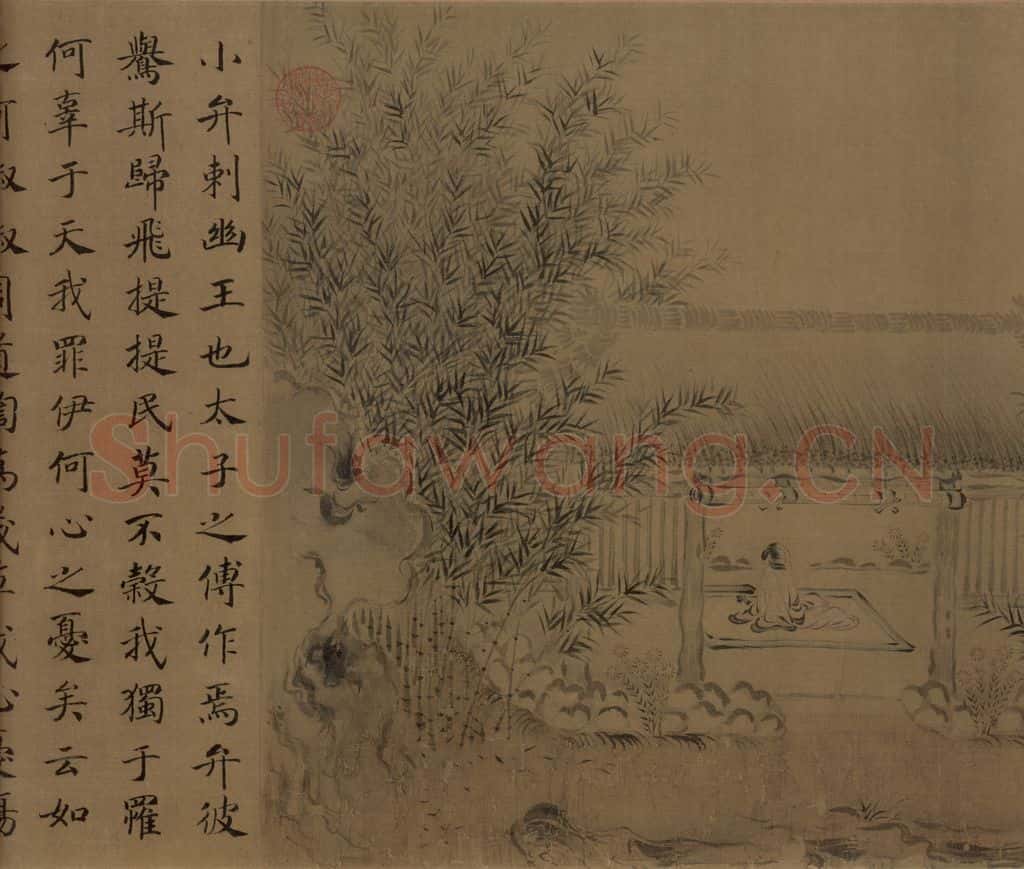 小弁刺幽王也太子之傅作焉弁彼
鸒斯歸飛提提民莫不穀我獨于罹
何辜于天我罪伊何心之憂矣云如
Shufawang.CN